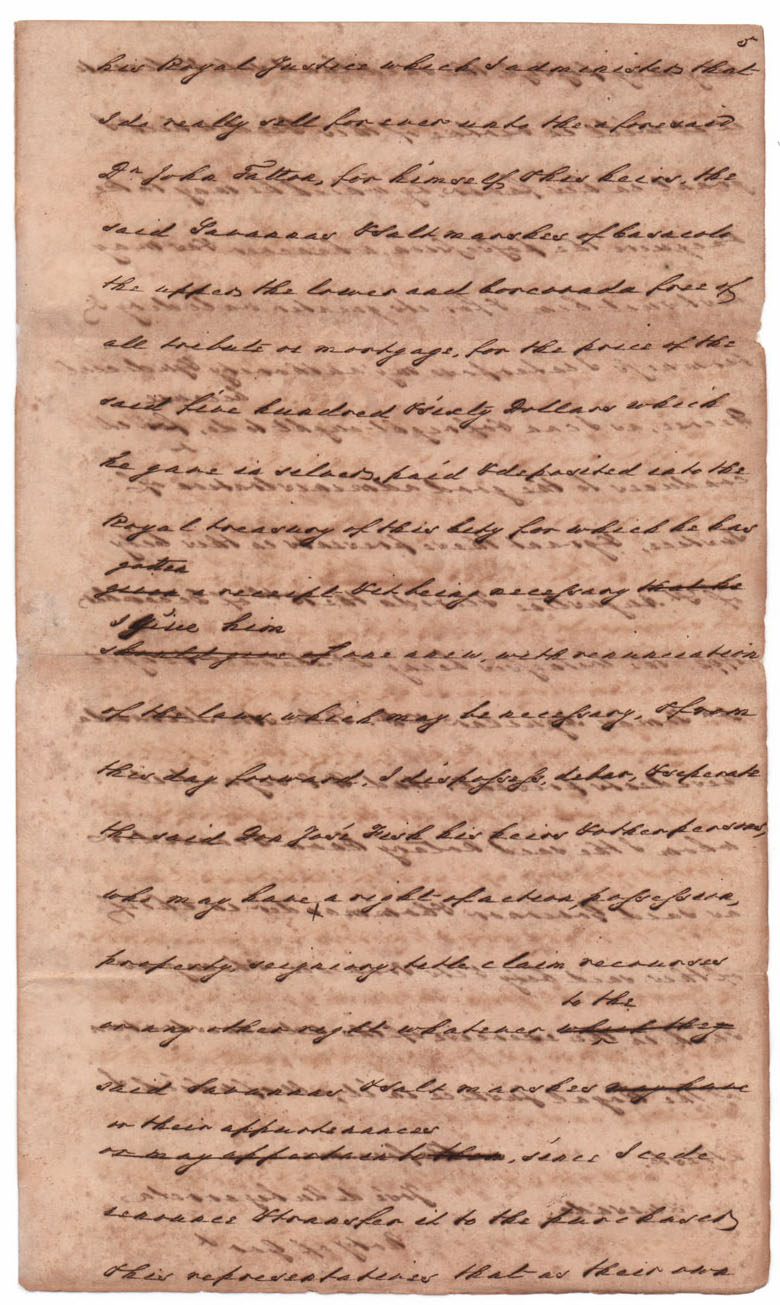 5
his Royal Justice which I administer, that
I do really sell for ever unto the aforesaid
Dn John Tatton, for himself & his heirs, the
said Savannas & Salt marshes of Casacolo
the upper, the lower and free of
all tribute or mortgage, for the price of the
said five hundred & sixty Dollars which
he gave in silver, paid & deposited into the
Royal treasury of this City for which he has
gotten
given a receipt & it being necessary that he
I give him
should give of one anew, with renunciation
of the laws which may be necessary, & from
this day forward, I dispossess, debar, & seperate
the said Don José Fish his heirs & other persons,
who may have a right of action possession,
property, seigniory title claim recourses
to the
or any other right whatever which they
said Savannas & Salt marshes may have
or their appurtenances
or may appertain to them, since I cede
renounce & transfer it to the purchaser,
& his representatives that as their own